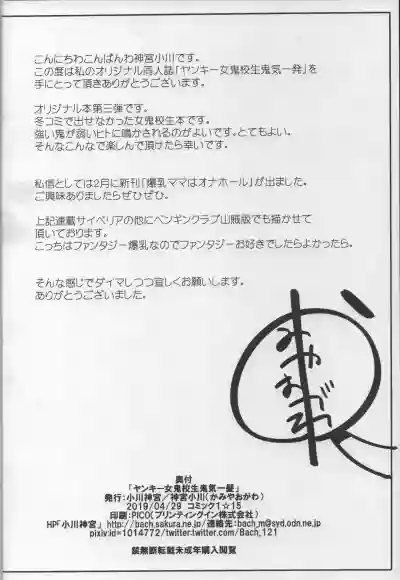 こんにちわこんばんわ神宮小川です。
この度は私のオリジナル同人誌「ヤンキー女鬼校生鬼気一発」を
手にとって頂きありがとうございます。
オリジナル本第三弾です。
冬コミで出せなかった女鬼校生本です。
強い鬼が弱いヒトに鳴かされるのがよいです。とてもよい。
そんなこんなで楽しんで頂けたら幸いです。
私信としては2月に新刊「爆乳ママはオナホール」が出ました。
ご興味ありましたらぜひぜひ。
上記連載サイベリアの他にペンギンクラブ山賊版でも描かせて
頂いております。
こっちはファンタジー爆乳なのでファンタジーお好きでしたらよかったら。
そんな感じでダイマしつつ宜しくお願いします。
ありがとうございました。
奥付
「ヤンキー女鬼校生鬼気一髪」
発行：小川神宮／神宮小川(かみやおがわ)
2019/04/29 コミック1☆15
印刷：PICO(プリンティングイン株式会社)
HP「小川神宮」 http://bach.sakura.ne.jp/連絡先：bach_m@syd.odn.ne.jp
pixiv:id=1014772/twitter:twitter.com/Bach_121
禁無断転載未成年購入閲覧